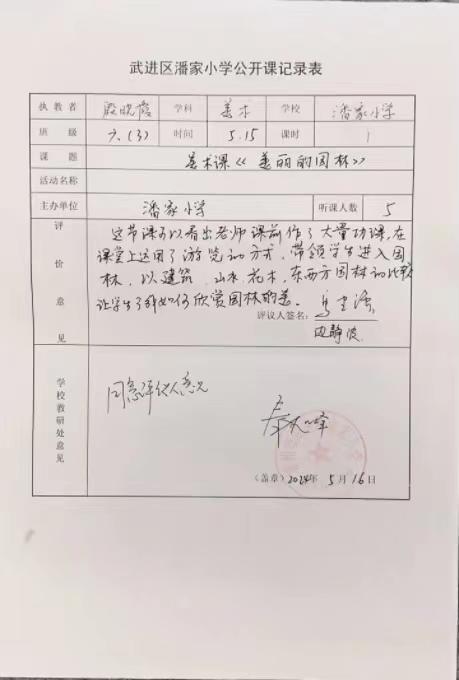 武进区潘家小学公开课记录表
执教者 殷晓霞 学科 美术 学校 潘家小学
班级 六.(3) 时间 5.15 课时 1
课题 美术课《美丽的园林》
活动名称
主办单位 潘家小学 听课人数 5
评价意见
这节课可以看出老师课前作了大量功课,在
课堂上运用了游览的方式,带领学生进入园
林,以建筑、山水、花木,东西方园林的比较
让学生了解如何欣赏园林的美。
评议人签名:
边静波
学校教研处意见
同意评议人意见
(盖章) 2024年5月16日